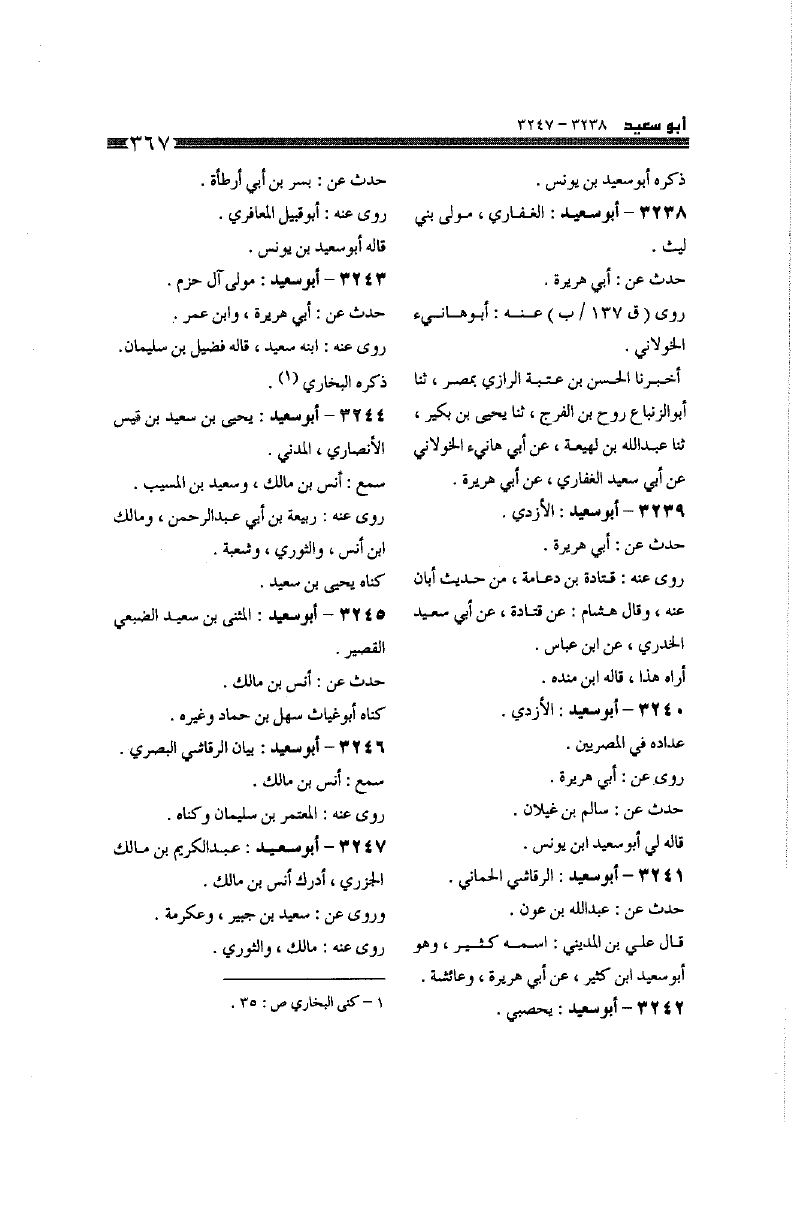 أبو سعيد ٣٢٣٨ - ٣٢٤٧
٣٦٧
ذكره أبو سعيد بن يونس .
٣٢٣٨ - أبو سعيد : الغفاري ، مولى بني
ليث .
حدث عن : أبي هريرة .
روى ( ق ١٣٧ / ب ) عنه : أبو هانيء
الخولاني .
أخبرنا الحسن بن عتبة الرازي بمصر ، ثنا
أبو الزنباع روح بن الفرج ، ثنا يحيى بن بكير ،
ثنا عبدالله بن لهيعة ، عن أبي هانيء الخولاني
عن أبي سعيد الغفاري ، عن أبي هريرة .
٣٢٣٩ - أبو سعيد : الأزدي .
حدث عن : أبي هريرة .
روى عنه : قتادة بن دعامة ، من حديث أبان
عنه ، وقال هشام : عن قتادة ، عن أبي سعيد
الخدري ، عن ابن عباس .
أراه هذا ، قاله ابن منده .
٣٢٤٠ - أبو سعيد : الأزدي .
عداده في المصريين .
روى عن : أبي هريرة .
حدث عن : سالم بن غيلان .
قاله لي أبو سعيد ابن يونس .
٣٢٤١ - أبو سعيد : الرقاشي الحماني .
حدث عن : عبدالله بن عون .
قال علي بن المديني : اسمه كثير ، وهو
أبو سعيد ابن كثير ، عن أبي هريرة ، وعائشة .
٣٢٤٢ - أبو سعيد : يحصبي .
حدث عن : بسر بن أبي أرطأة .
روى عنه : أبو قبيل المعافري .
قاله أبو سعيد بن يونس .
٣٢٤٣ - أبو سعيد : مولى آل حزم .
حدث عن : أبي هريرة ، وابن عمر .
روى عنه : ابنه سعيد ، قاله فضيل بن سليمان.
ذكره البخاري (١) .
٣٢٤٤ - أبو سعيد : يحيى بن سعيد بن قيس
الأنصاري ، المدني .
سمع : أنس بن مالك ، وسعيد بن المسيب .
روى عنه : ربيعة بن أبي عبدالرحمن ، ومالك
ابن أنس ، والثوري ، وشعبة .
كناه يحيى بن سعيد .
٣٢٤٥ - أبو سعيد : المثنى بن سعيد الضبعي
القصير .
حدث عن : أنس بن مالك .
كناه أبو غياث سهل بن حماد وغيره .
٣٢٤٦ - أبو سعيد : بيان الرقاشي البصري .
سمع : أنس بن مالك .
روى عنه : المعتمر بن سليمان وكناه .
٣٢٤٧ - أبو سعيد : عبدالكريم بن مالك
الجزري ، أدرك أنس بن مالك .
وروى عن : سعيد بن جبير ، وعكرمة .
روى عنه : مالك ، والثوري .
١ - كنى البخاري ص : ٣٥ .